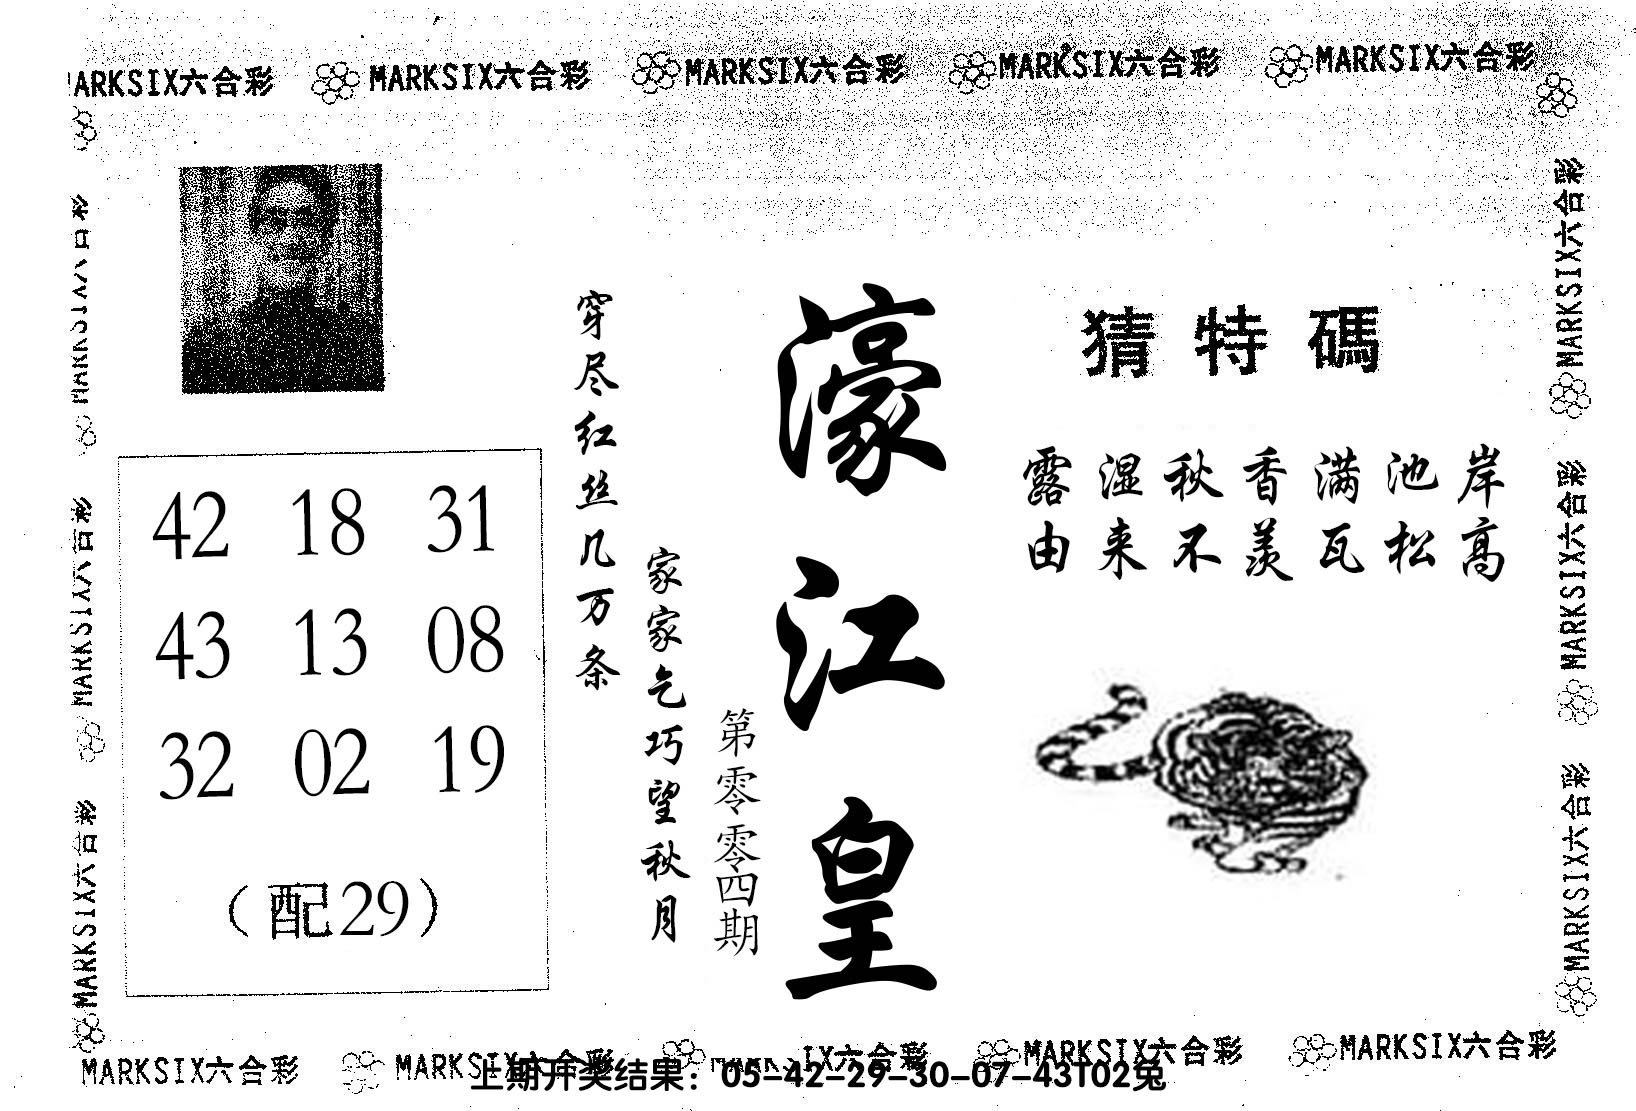 MARKSIX六合彩 MARKSIX六合彩 MARKSIX六合彩 MARKSIX六合彩 MARKSIX六合彩
MARKSIX六合彩
MARKSIX六合彩
MARKSIX六合彩
42 18 31
43 13 08
32 02 19
（配29）
穿尽红丝几万条
家家乞巧望秋月
第零零四期
濠江皇
猜特碼
露湿秋香满池岸
由来不羡瓦松高
MARKSIX六合彩
MARKSIX六合彩
MARKSIX六合彩
MARKSIX六合彩 MARKSIX六合彩 MARKSIX六合彩 MARKSIX六合彩 MARKSIX六合彩
上期开奖结果：05-42-29-30-07-43T02兔